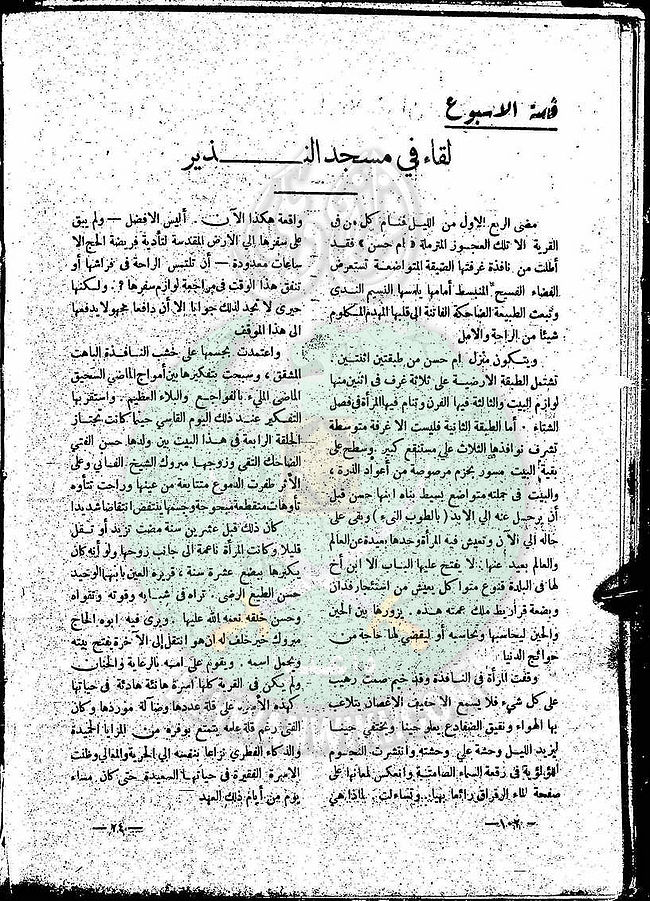 قصة الاسبوع
لقاء في مسجد النـــــذير
مضى الربع الاول من الليل فنام كل من فى
القرية الا تلك العجوز المترملة « ام حسن » فقد
أطلت من نافذة غرفتها الضيقة المتواضعة تستعرض
الفضاء الفسيح المنبسط أمامها يلمسها النسيم الندى
وتبعث الطبيعة الضاحكة الفاتنة الى قلبها المهدم المكلوم
شيئا من الراحة والأمل
ويتكون منزل ام حسن من طبقتين اثنتين .
تشتمل الطبقة الارضية على ثلاثة غرف فى اثنين منها
لوازم البيت والثالثة فيها الفرن وتنام فيها المرأة فى فصل
الشتاء . أما الطبقة الثانية فليست الا غرفة متوسطة
تشرف نوافذها الثلاث على مستنقع كبير وسطح على
بقية البيت مسور بحزم مرصوصة من أعواد الذرة ،
والبيت فى جملته متواضع بسيط بناه ابنها حسن قبل
أن يرحل عنه إلى الابد ( بالطوب النىء ) وبقى على
حاله إلى الآن وتعيش فيه المرأة وحدها بعيدة عن العالم
والعالم بعيد عنها . لا يفتح عليها الباب الا ابن أخ
لها فى البلدة قنوع متواكل يعيش من استئجار فدان
وبضعة قراريط ملك عمته هذه . يزورها بين الحين
والحين ليحاسبها وتحاسبه أو ليقضي لها حاجة من
حوائج الدنيا
وقفت المرأة فى النافذة وقد خيم صمت رهيب
على كل شىء فلا يسمع الا حفيف الاغصان يتلاعب
بها الهواء ونقيق الضفادع يعلو حينا ويختفي حينا
ليزيد الليل وحشة على وحشته وانتشرت النجوم
اللؤلؤية فى رقعة السماء الصامتة وانعكس لمعانها على
صفحة الماء الرقراق رائعا بهيا . وتساءلت . لماذا هي
—١٠٢—
واقعة هكذا الآن . أليس الافضل — ولم يبق
على سفرها إلى الأرض المقدسة لتأدية فريضة الحج الا
ساعات معدودة — أن تلتمس الراحة فى فراشها أو
تنفق هذا الوقت فى مراجعة لوازم سفرها ؟ . ولكنها
حيرى لا تجد لذلك جوابا الا أن دافعا مجهولا يدفعها
الى هذا الموقف
واعتمدت بجسمها على خشب النافذة الباهت
المشقق ، وسبحت بتفكيرها بين أمواج الماضي السحيق
الماضي الملىء بالفواجع والبلاء العظيم . واستقر بها
التفكير عند ذلك اليوم القاسي حينما كانت تجتاز
الحلقة الرابعة فى هذا البيت بين ولدها حسن الفتى
الضاحك التقي وزوجها مبروك الشيخ الفانى وعلى
الأثر طفرت الدموع متتابعة من عينها وراحت تتأوه
تأوهات متقطعة مبحوحة وجسمها ينتفض انتفاضا شديدا
كان ذلك قبل عشرين سنة مضت تزيد أو تقل
قليلا وكانت المرأة ناعمة الى جانب زوجها ولو أنه كان
يكبرها ببضع عشرة سنة ، قريرة العين بابنها الوحيد
حسن الطيع الرضى . تراه فى شبابه وقوته وتقواه
وحسن خلقه نعمة الله عليها . ويرى فيه ابوه الحاج
مبروك خير خلف له ان هو انتقل إلى الآخرة يفتح بيته
ويحمل اسمه . ويقوم على امه بالرعاية والحنان
ولم يكن فى القرية كلها أسرة هانئة هادئة فى حياتها
كهذه الأسرة على قلة عددها وضآلة موردها وكان
الفتى رغم قلة علمه يتمتع بوفرة من المزايا الحميدة
والذكاء الفطرى نزاعا بنفسه إلى الحرية والمعالي وظلت
الاسرة الفقيرة فى حياتها السعيدة حتى كان مساء
يوم من أيام ذلك العهد
—٢٤—